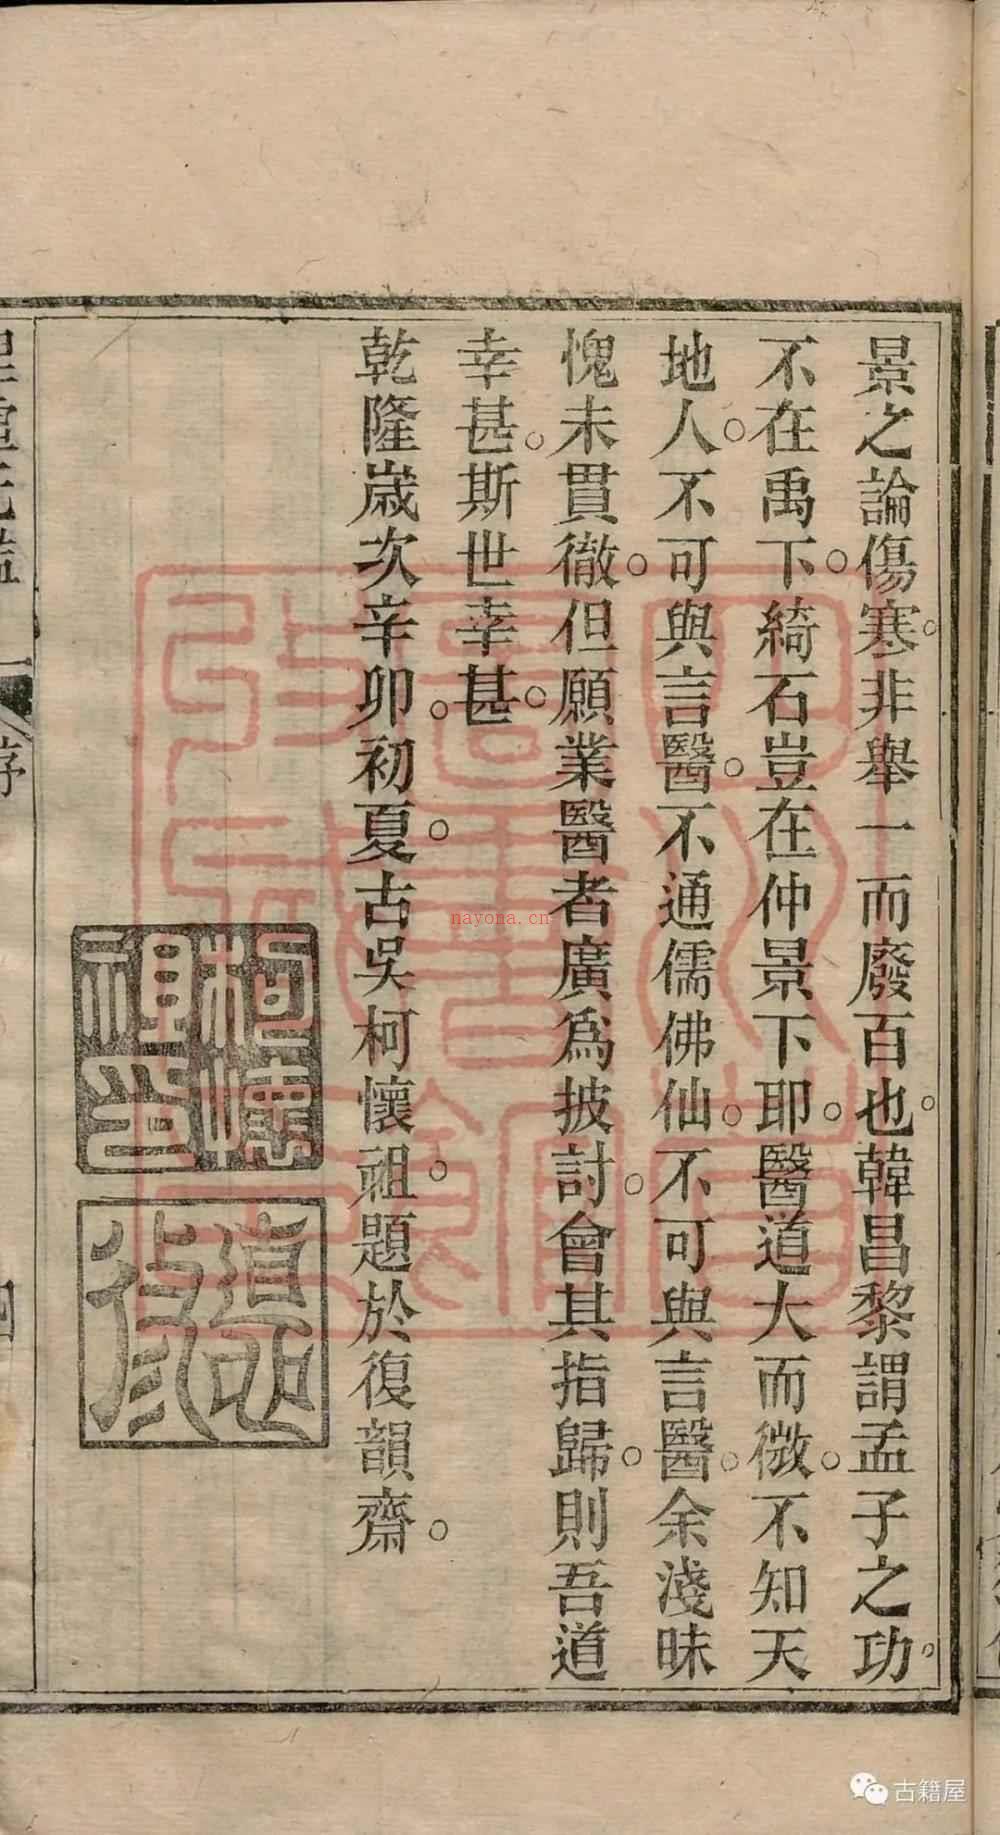 景之論傷寒。非舉一而廢百也。韓昌黎謂孟子之功。
不在禹下。綺石豈在仲景下耶。醫道大而微。不知天
地人。不可與言醫。不通儒佛仙。不可與言醫。余淺昧
愧未貫徹。但願業醫者廣為披討。會其指歸。則吾道
幸甚。斯世幸甚。
乾隆歲次辛卯。初夏。古吳柯懷祖。題於復韻齋。
柯懷
祖印
序
四
nayona.cn
古籍屋